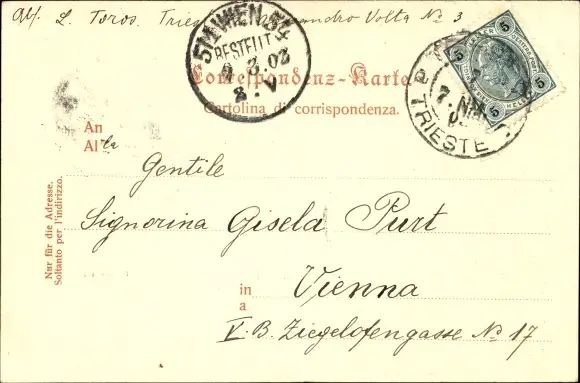 Alf. L. Toros. Trieste Alessandro Volta No. 3
5/1 WIEN 54
BESTELLT
9. 2. 03
8. V
Correspondenz-Karte
Cartolina di corrispondenza.
5 HELLER 5
5 HELLER 5
7.
TRIESTE
An
Alla
Gentile
Signorina Gisela Purt
in
a
Vienna
V. B. Ziegelofengasse No 17
Nur für die Adresse.
Soltanto per l'indirizzo.